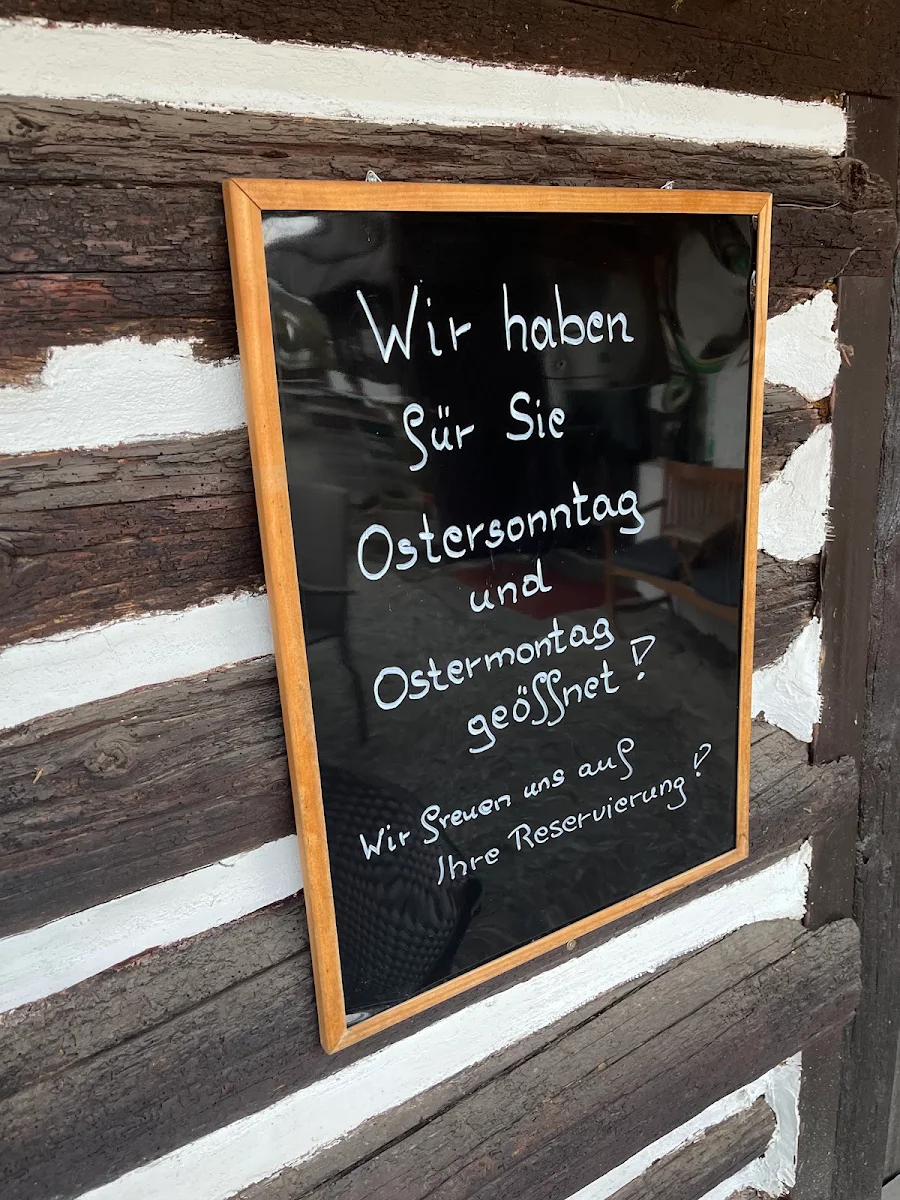 Wir haben
für Sie
Ostersonntag
und
Ostermontag
geöffnet!
Wir freuen uns auf
Ihre Reservierung!